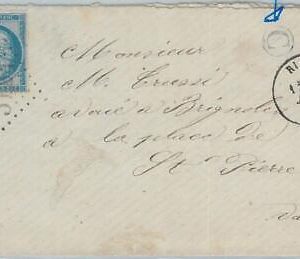 Monsieur
M. Trussi
avoué à Brignol
à la place de
St Pierre
Va
C
RI